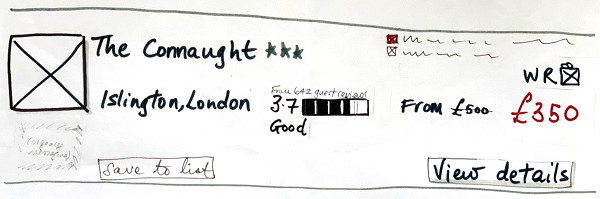 The Connaught ★★★
WR
Islington, London
From 642 guest reviews
3.7
Good
From £500 £350
Save to list
View details